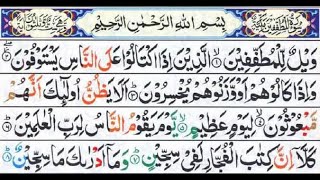 بِسْمِ اللّٰهِ الرَّحْمٰنِ الرَّحِيْمِ
وَيْلٌ لِّلْمُطَفِّفِيْنَ ۙ﴿۱﴾ الَّذِيْنَ اِذَا اكْتَالُوْا عَلَى النَّاسِ يَسْتَوْفُوْنَ ۖ﴿۲﴾
وَاِذَا كَالُوْهُمْ اَوْ وَّزَنُوْهُمْ يُخْسِرُوْنَ ؕ﴿۳﴾ اَلَا يَظُنُّ اُولٰٓئِكَ اَنَّهُمْ
مَّبْعُوْثُوْنَ ۙ﴿۴﴾ لِيَوْمٍ عَظِيْمٍ ۙ﴿۵﴾ يَّوْمَ يَقُوْمُ النَّاسُ لِرَبِّ الْعٰلَمِيْنَ ؕ﴿۶﴾
كَلَّاۤ اِنَّ كِتٰبَ الْفُجَّارِ لَفِيْ سِجِّيْنٍ ؕ﴿۷﴾ وَمَاۤ اَدْرٰىكَ مَا سِجِّيْنٌ ؕ﴿۸﴾